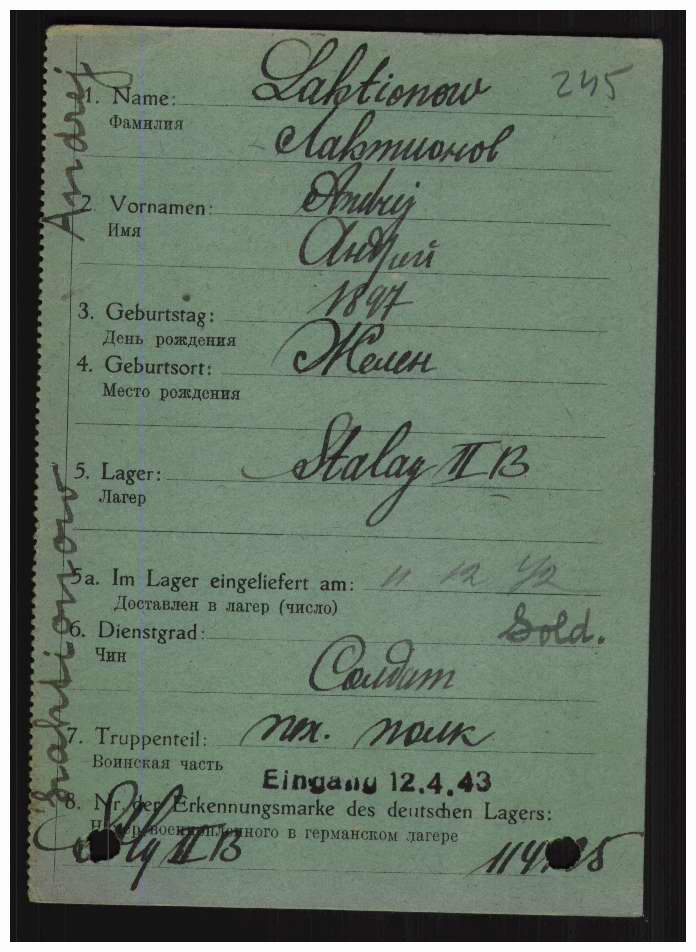 245
1. Name: Laktionow
Фамилия
Лактионов
2. Vornamen: Andrej
Имя
Андрей
1897
3. Geburtstag:
День рождения
4. Geburtsort: Желен
Место рождения
5. Lager: Stalag II B
Лагер
5a. Im Lager eingeliefert am: 11 12 42
Доставлен в лагер (число)
6. Dienstgrad: Sold.
Чин
Солдат
7. Truppenteil: пех. полк
Воинская часть
Eingang 12.4.43
8. Nr. der Erkennungsmarke des deutschen Lagers:
Номер военнопленного в германском лагере
II B
Laktionow Andrej